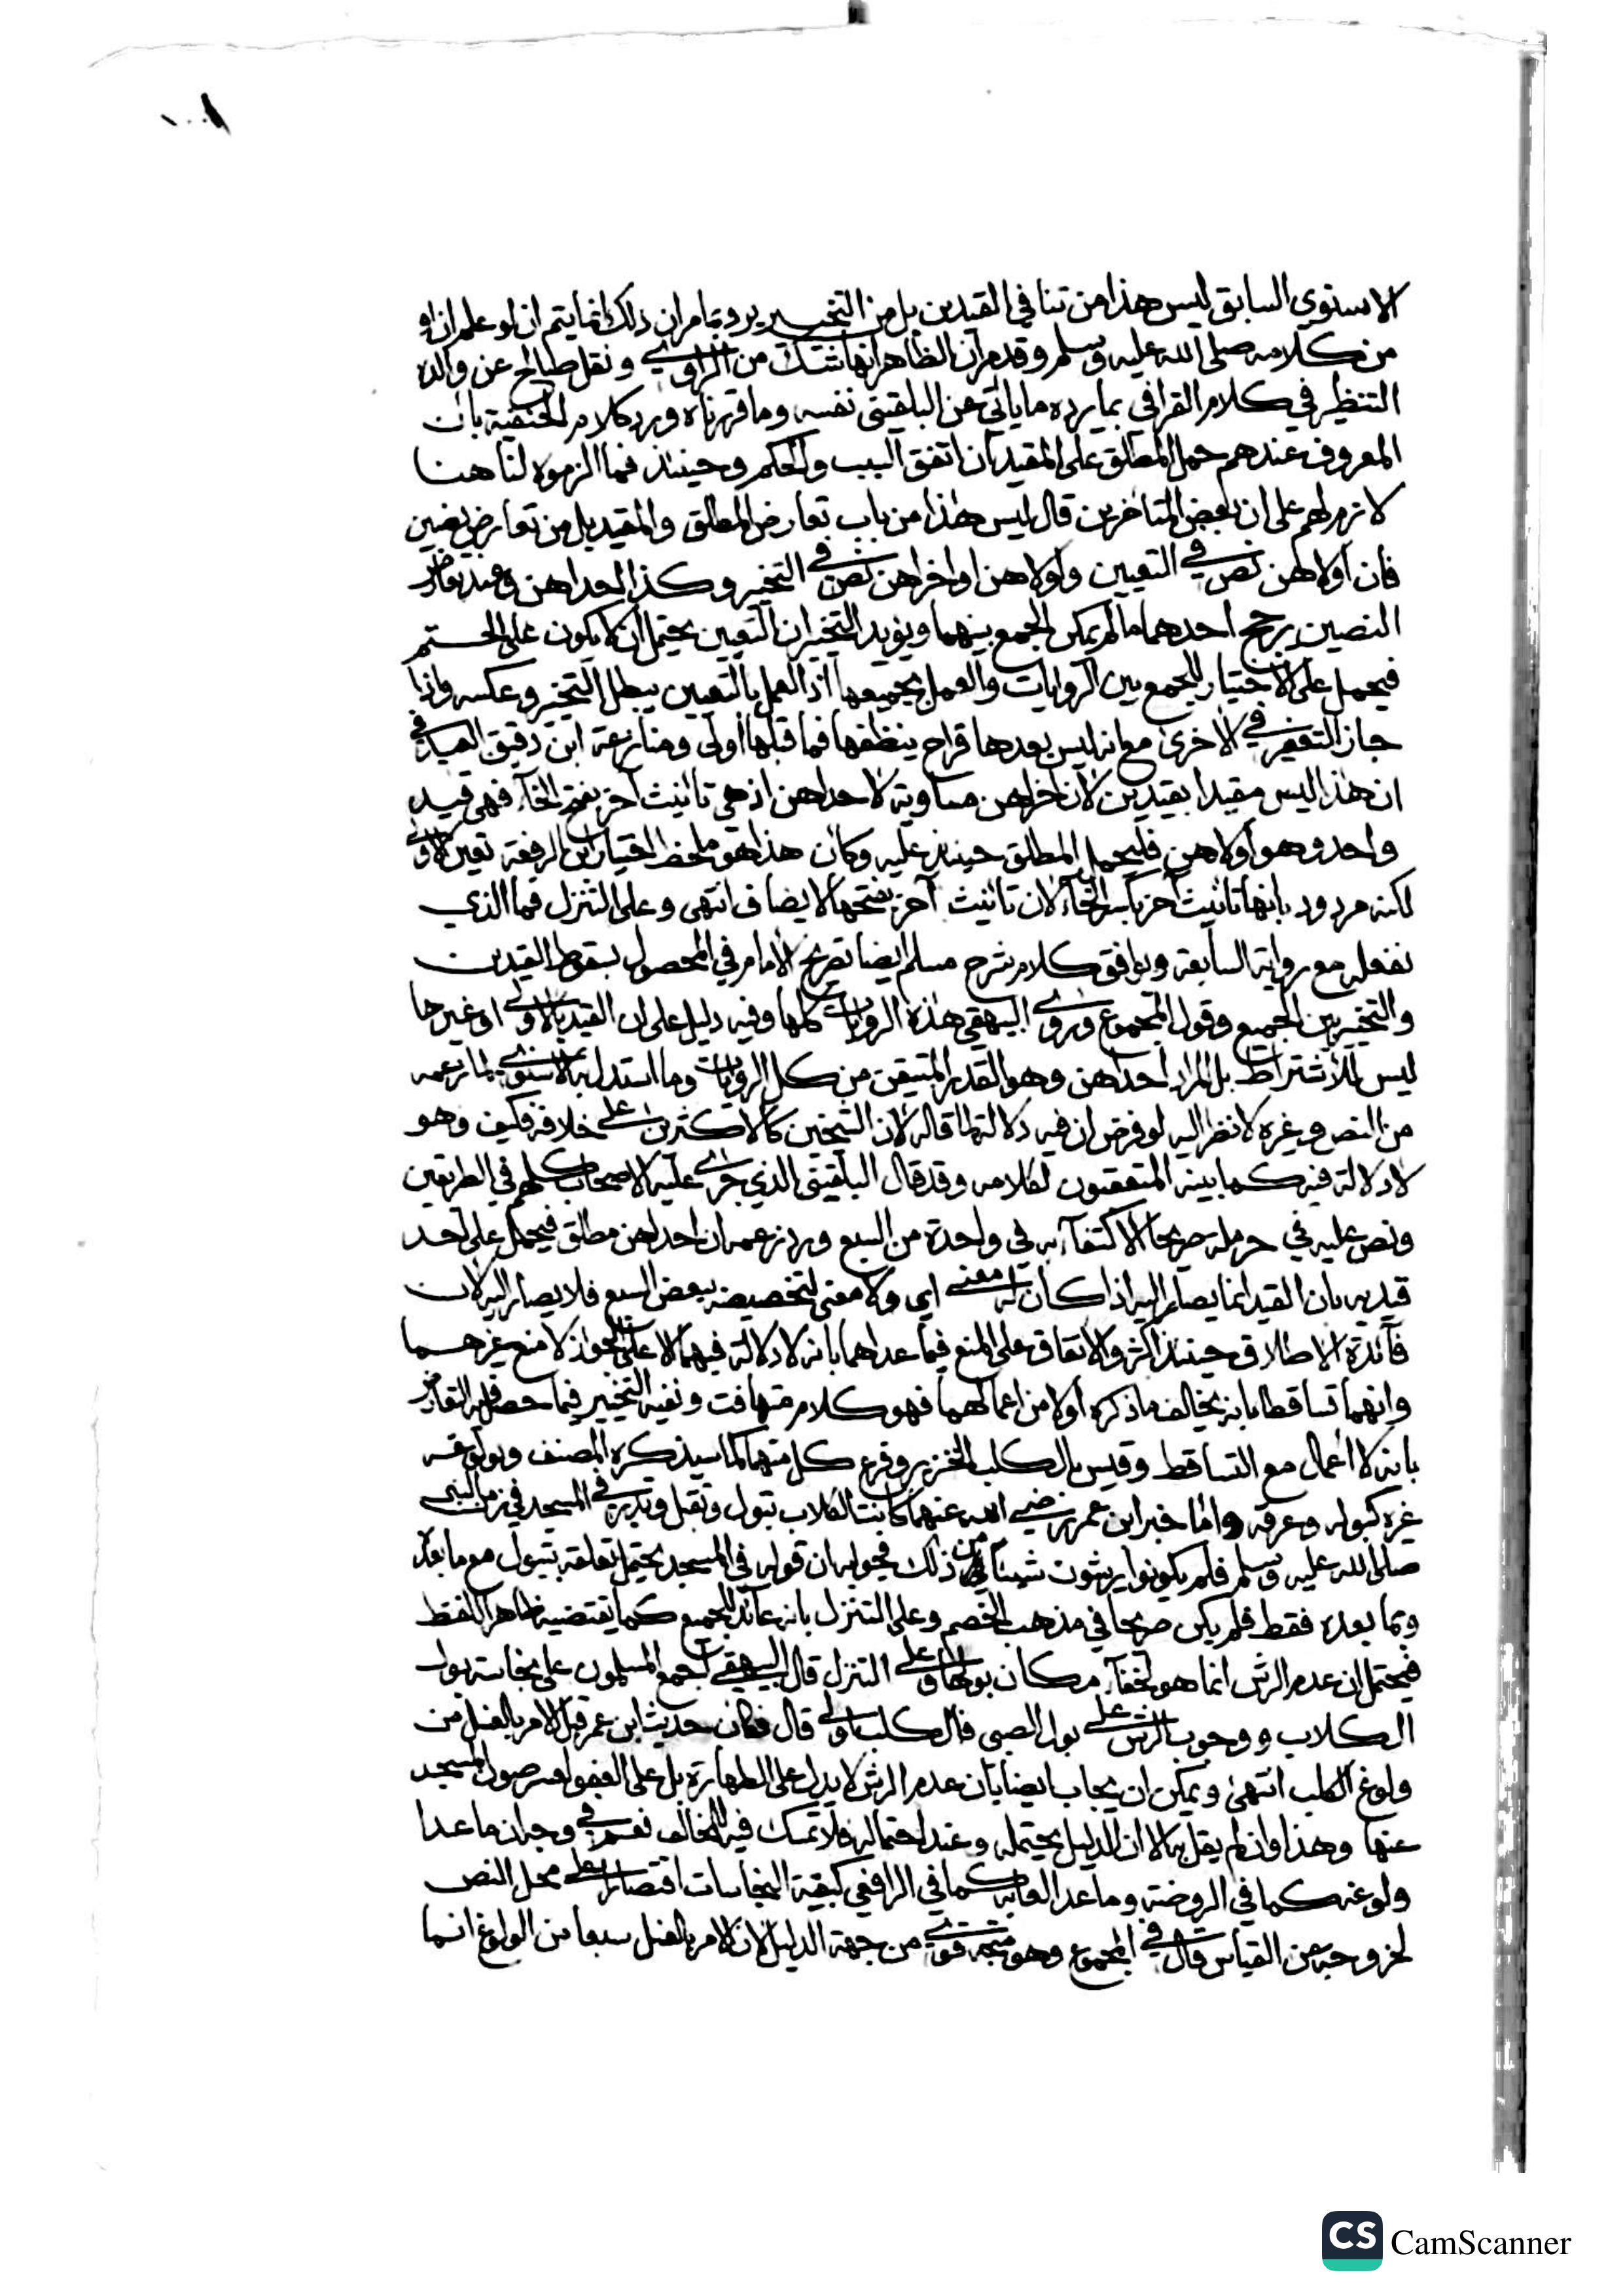 ١٠٠
الاسنوي السابق ليس هذا من تنافي القيدين بل من التخيير يرد بما مر ان ذلك انما يتم ان لو علم ان او
من كلامه صلى الله عليه وسلم وقد مر ان الظاهر انها شك من الراوي ونقل صالح عن والده
التنظير في كلام القرافي بما يرده ما ياتي عن البلقيني نفسه وما قررناه ورد كلام الحنفية بان
المعروف عندهم حمل المطلق على المقيد ان اتفق السبب والحكم وحينئذ فما الزموه لنا هنا
لازم لهم على ان بعض المتاخرين قال ليس هذا من باب تعارض المطلق والمقيد بل من تعارض نصين
فان اولاهن نص في التعيين واولاهن او اخراهن نص في التخيير وكذا احداهن وعند تعارض
النصين يرجح احدهما ما لم يمكن الجمع بينهما ويؤيد التخيير ان التعيين يحتمل ان لا يكون على الحتم
فيحمل على الاختيار للجمع بين الروايات والعمل بجميعها اذ العمل بالتعيين يبطل التخيير وعكسه واذا
جاز التعفير في الاخرى مع انه ليس بعدها قراح ينظفها فما قبلها اولى ومنازعة ابن دقيق العيد في
ان هذا ليس مقيدا بقيدين لان اخراهن مساوية لاحداهن اذ هي تانيث آخر بفتح الخآء فهي قيد
واحد وهو اولاهن فليحمل المطلق حينئذ عليه وكان هذا هو ملحظ اختيار ابن الرفعة تعين الاولى
لكنه مردود بانها تانيث آخر بكسر الخآء لان تانيث آخر بفتحها لا يضاف انتهى وعلى التنزل فما الذي
نفعله مع رواية السابعة ويوافق كلام شرح مسلم ايضا تصريح الامام في المحصول بسقوط القيدين
والتخيير بين الجميع وقول المجموع وروى البيهقي هذه الروايات كلها وفيه دليل على ان القيد بالاولى او غيرها
ليس للاشتراط بل المراد احداهن وهو القدر المتيقن من كل الروايات وما استدل به الاسنوي لما زعمه
من النص وغيره لا نظر اليه لو فرض ان فيه دلالة لما قاله لان الشيخين كالاكثرين على خلافه فكيف وهو
لا دلالة فيه كما بينه المتعقبون لكلامه وقد قال البلقيني الذي جرى عليه الاصحاب كلهم في الطريقين
ونص عليه في حرملة صريحا الاكتفآء به في واحدة من السبع ورد زعمه ان احداهن مطلق فيحمل على احد
قيديه بان القيد انما يصار اليه اذا كان له معنى اي ولا معنى لتخصيصه ببعض السبع فلا يصار اليه لان
فآئدة الاطلاق حينئذ اكثر والاتفاق على المنع فيما عداهما بانه لا دلالة فيهما الا على الجواز لا منع غيرهما
وانهما تساقطا بانه يخالف ما ذكره اولا من اعمالهما فهو كلام متهافت ونفيه التخيير فيما حصل فيه التعارض
بانه لا اعمال مع التساقط وقيس بالكلب الخنزير وفرع كل منهما كما سيذكره المصنف وبولوغه
غيره كبوله وعرقه واما خبر ابن عمر رضي الله عنهما كانت الكلاب تبول وتقبل وتدبر في المسجد في زمن النبي
صلى الله عليه وسلم فلم يكونوا يرشون شيئا من ذلك فجوابه ان قوله في المسجد يحتمل تعلقه بتبول مع ما بعده
وبما بعده فقط فلم يكن صريحا في مذهب الخصم وعلى التنزل بانه عآئد للجميع كما يقتضيه ظاهر اللفظ
فيحتمل ان عدم الرش انما هو لخفآء مكان بولها وعلى التنزل قال البيهقي اجمع المسلمون على نجاسة بول
الكلاب ووجوب الرش على بول الصبي فالكلب اولى قال فكان حديث ابن عمر قبل الامر بالغسل من
ولوغ الكلب انتهى ويمكن ان يجاب ايضا بان عدم الرش لا يدل على الطهارة بل على العفو لعسر صون المسجد
عنها وهذا وان لم يقل به الا ان الدليل يحتمله وعند احتماله فلا تمسك فيه للمخالف نعم في وجه ان ما عدا
ولوغه كما في الروضة وما عدا لعابه كما في الرافعي كبقية النجاسات اقتصارا على محل النص
لخروجه عن القياس قال في المجموع وهو متجه قوي من جهة الدليل لان الامر بالغسل سبعا من الولوغ انما
CS CamScanner